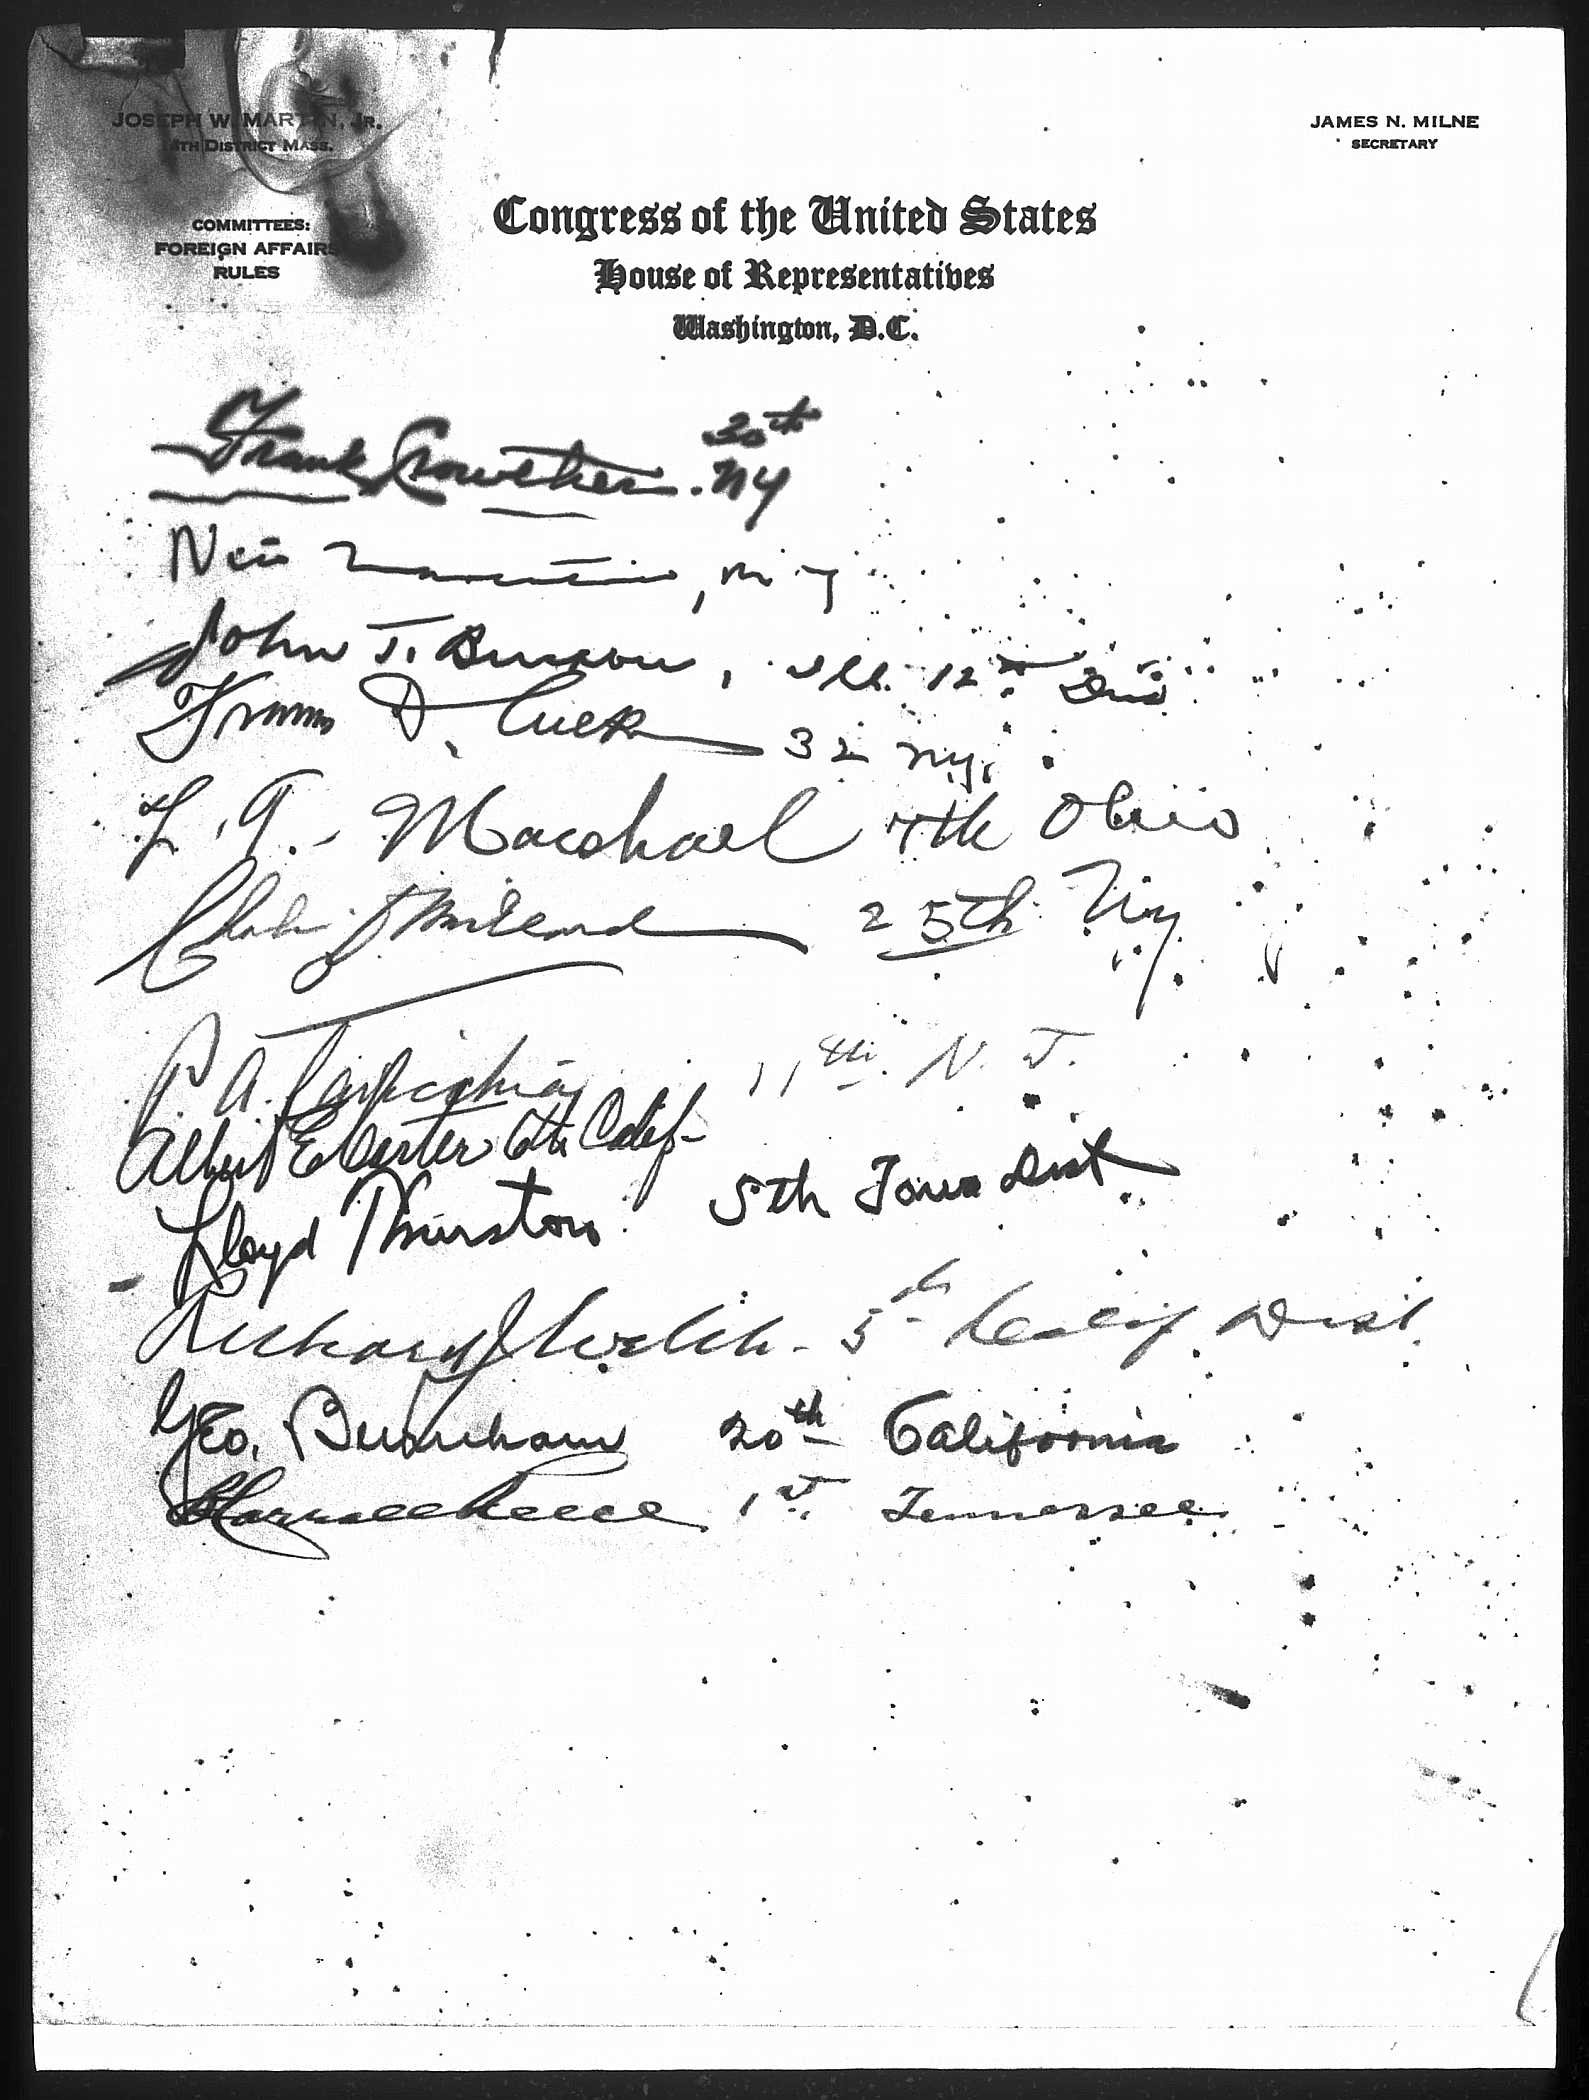 JOSEPH W. MARTIN, JR.
4TH DISTRICT MASS.
JAMES N. MILNE
SECRETARY
COMMITTEES:
FOREIGN AFFAIRS
RULES
Congress of the United States
House of Representatives
Washington, D.C.
Frank Crowther. 30th NY
John T. Buckbee, Ill. 12th Dis
Francis D. Culkin 32 N.Y.
L. T. Marshall 7th Ohio
Chas D Millard 25th N.Y.
P. A. Cavicchia 11th N. J.
Albert E Carter 6th Calif-
Lloyd Thurston 5th Iowa Dist
Richard J Welch - 5th Calif. Dist.
Geo. Burnham 20th California
B Carroll Reece 1st Tennessee